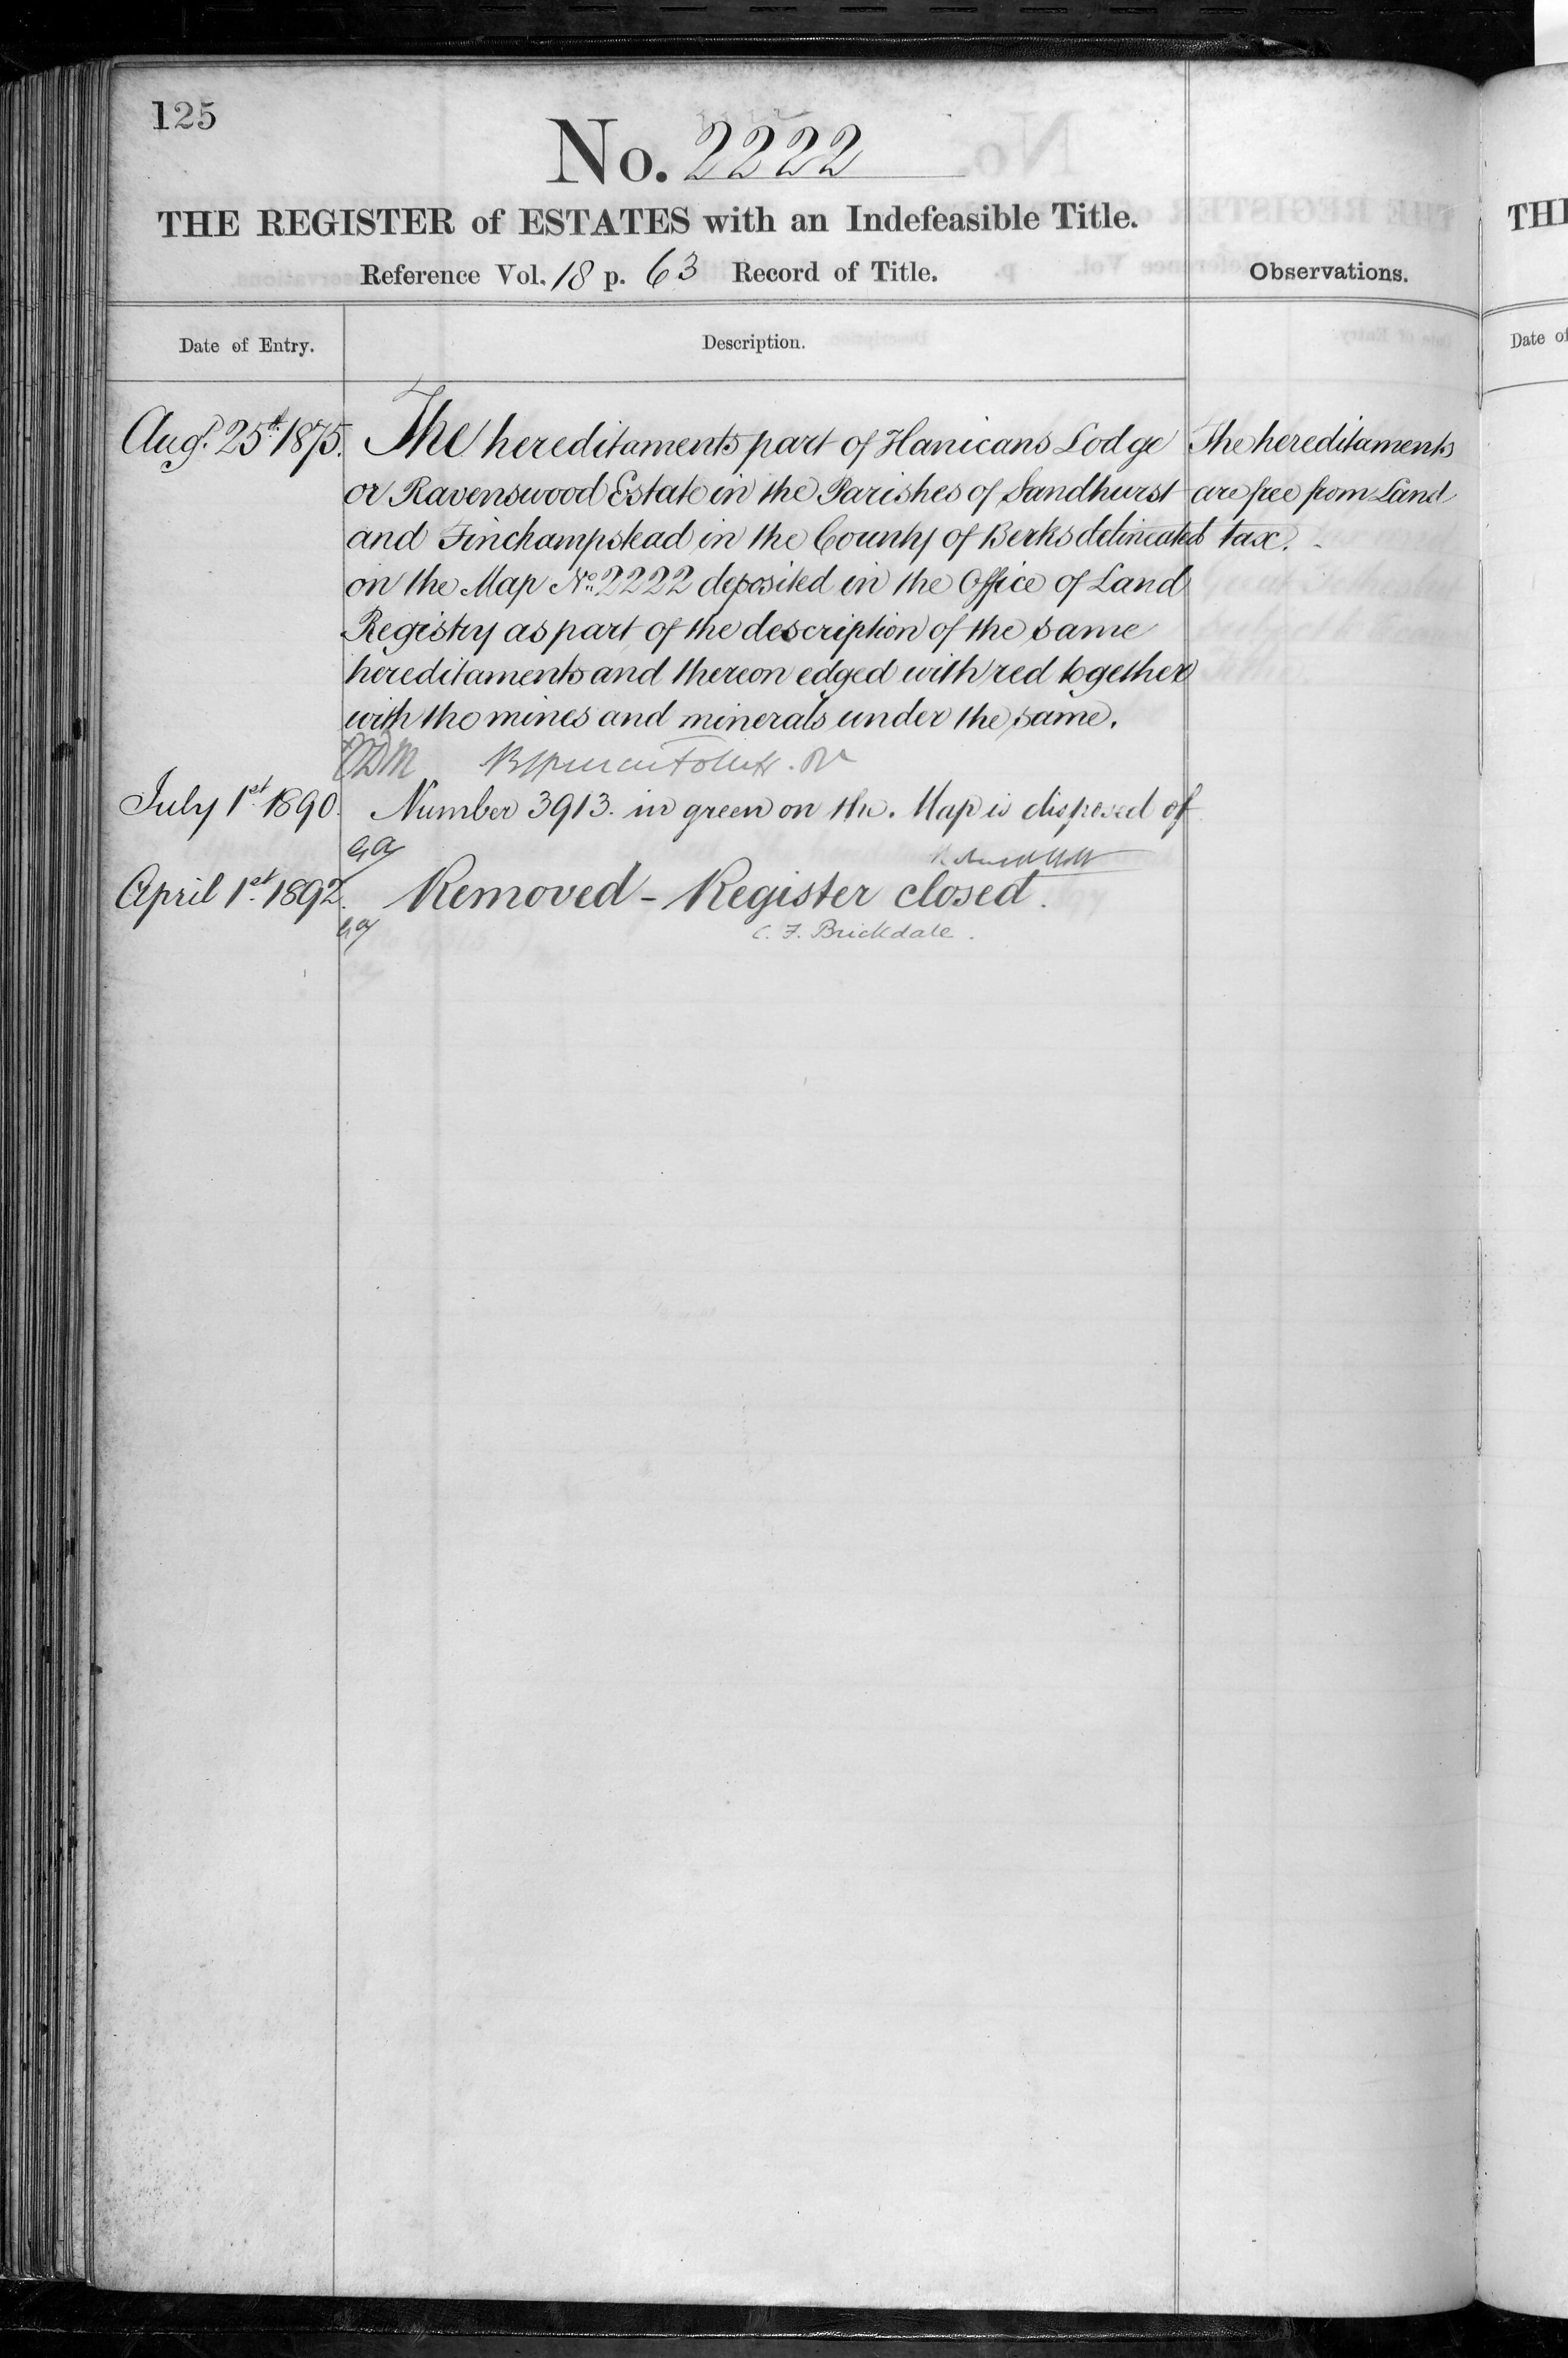 125
No. 2222
THE REGISTER of ESTATES with an Indefeasible Title.
Reference Vol. 18 p. 63 Record of Title.
Observations.
Date of Entry.
Description.
Augt. 25th 1875.
The hereditaments part of Hanicans Lodge
or Ravenswood Estate in the Parishes of Sandhurst
and Finchampstead in the County of Berks delineated
on the Map No. 2222 deposited in the Office of Land
Registry as part of the description of the same
hereditaments and thereon edged with red together
with the mines and minerals under the same.
The hereditaments
are free from Land
tax.
July 1st 1890.
Number 3913. in green on the. Map is disposed of
April 1st 1892.
Removed - Register closed.
C. F. Brickdale.
THE
Date of